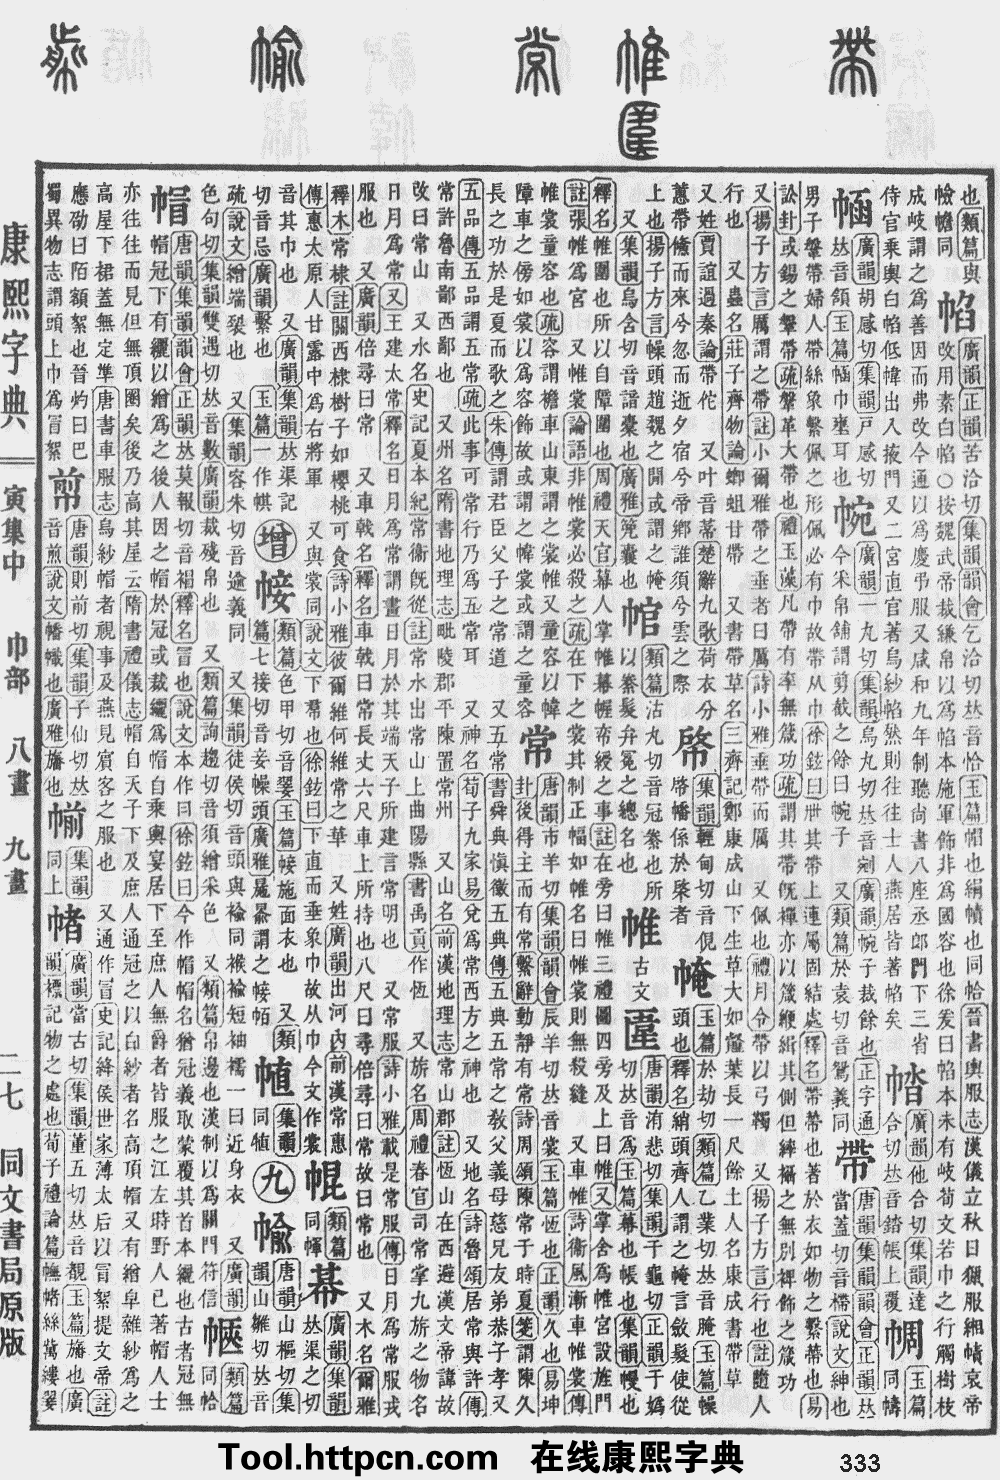 康熙字典 寅集中 巾部 八畫 九畫 二七 同文書局原版
也類篇與
憸幨同
帢
廣韻正韻苦洽切集韻韻會乞洽切𠀤音恰玉篇帽也絹幘也同帢晉書輿服志漢儀立秋日獵服緗幘哀帝
改用素白帢○按魏武帝裁縑帛以爲帢本施軍飾非爲國容也徐爰曰帢本未有岐荀文若巾之行觸樹枝
成岐謂之爲善因而弗改今通以爲慶弔服又咸和九年制聽尚書八座丞郎門下三省
侍官乘輿白帢低幃出入掖門又二宮直官著烏紗帢然則往往士人燕居皆著帢矣
廣韻他合切集韻達
合切𠀤音錔帳上覆
玉篇
同幬
廣韻胡感切集韻戸感切
𠀤音頷玉篇巾壅耳也
帵
廣韻一丸切集韻烏丸切𠀤音剜廣韻帵子裁餘也正字通
今宋帛舖謂剪截之餘曰帵子 又類篇於袁切音鴛義同
帶
唐韻集韻韻會正韻𠀤
當蓋切音說文紳也
男子鞶帶婦人帶絲象繫佩之形佩必有巾故帶从巾徐鉉曰丗其帶上連屬固結處釋名帶蔕也著於衣如物之繫蔕也易
訟卦或錫之鞶帶疏鞶革大帶也禮玉藻凡帶有率無箴功疏謂其帶旣襌亦以箴緶緝其側但繂襵之無別裨飾之箴功
又揚子方言厲謂之帶註小爾雅帶之垂者曰厲詩小雅垂帶而厲 又佩也禮月令帶以弓韣 又揚子方言行也註隨人
行也 又蟲名莊子齊物論蝍蛆甘帶 又書帶草名三齊記鄭康成山下生草大如葉長一尺餘土人名康成書帶草
又姓賈誼過秦論帶佗 又叶音蔕楚辭九歌荷衣兮
蕙帶儵而來兮忽而逝夕宿兮帝鄕誰須兮雲之際
棨
集韻輕甸切音俔
啓幡係於棨者
㡋
玉篇於劫切類篇乙業切𠀤音腌玉篇幧
頭也釋名綃頭齊人謂之㡋言斂髮使從
上也揚子方言幧頭趙魏之閒或謂之㡋
又集韻烏含切音諳囊也廣雅囊也
類篇沽丸切音冠帣也所
以絭髮弁冕之總名也
帷
古文
唐韻洧悲切集韻于龜切正韻于嬀
切𠀤音爲玉篇幕也帳也集韻幔也
釋名帷圍也所以自障圍也周禮天官幕人掌帷幕幄帟綬之事註在旁曰帷三禮圖四旁及上曰帷又掌舍爲帷宮設旌門
註張帷爲宮 又帷裳論語非帷裳必殺之疏在下之裳其制正幅如帷名曰帷裳則無殺縫 又車帷詩衞風漸車帷裳傳
帷裳童容也疏容謂襜車山東謂之裳帷又童容以幃
障車之傍如裳以爲容飾故或謂之幃裳或謂之童容
常
唐韻市羊切集韻韻會辰羊切𠀤音裳玉篇恆也正韻久也易坤
卦後得主而有常繫辭動靜有常詩周頌陳常于時夏箋謂陳久
長之功於是夏而歌之朱傳謂君臣父子之常道 又五常書舜典愼徽五典傳五典五常之敎父義母慈兄友弟恭子孝又
五品傳五品謂五常疏此事可常行乃爲五常耳 又神名荀子九家易兌爲常西方之神也 又地名詩魯頌居常與許傳
常許魯南鄙西鄙 又州名隋書地理志毗陵郡平陳置常州 又山名前漢地理志常山郡註恆山在西避漢文帝諱故
改曰常山 又水名史記夏本紀常衞旣從註常水出常山上曲陽縣書禹貢作恆 又旂名周禮春官司常掌九旂之物名
日月爲常又王建太常釋名日月爲常謂畫日月於其端天子所建言常明也 又常服詩小雅載是常服傳日月爲常服戎
服也 又廣韻倍尋曰常 又車戟名釋名車戟曰常長丈六尺車上所持也八尺曰尋倍尋曰常故曰常也 又木名爾雅
釋木常棣註關西棣樹子如櫻桃可食詩小雅彼爾維何維常之華 又姓廣韻出河內前漢常惠
傳惠太原人甘露中爲右將軍 又與裳同說文下帬也徐鉉曰下直而垂象巾故从巾今文作裳
㡓
類篇
同幝
廣韻集韻
𠀤渠之切
音其巾也 又廣韻集韻𠀤渠記
切音忌廣韻繫也 玉篇一作帺
增
類篇色甲切音翣玉篇施面衣也 又類
篇七接切音妾幧頭廣雅謂之帞
集韻
同
九
㡏
唐韻山樞切集
韻山雛切𠀤音
疏說文繒端裂也 又集韻容朱切音逾義同 又集韻徒侯切音頭與褕同褕短袖襦一曰近身衣 又廣韻
色句切集韻雙遇切𠀤音數廣韻裁殘帛也 又類篇詢趨切音須繒采色 又類篇帛邊也漢制以爲關門符信
類篇
同帢
帽
唐韻集韻韻會正韻𠀤莫報切音瑁釋名冒也說文本作冃徐鉉曰今作帽帽名猶冠義取蒙覆其首本纚也古者冠無
帽冠下有纚以繒爲之後人因之帽於冠或裁纚爲帽自乘輿宴居下至庶人無爵者皆服之江左時野人已著帽人士
亦往往而見但無頂圈矣後乃高其屋云隋書禮儀志帽自天子下及庶人通冠之以白紗者名高頂帽又有繒皁雜紗爲之
高屋下裙蓋無定準唐書車服志烏紗帽者視事及燕見賓客之服也 又通作冒史記絳侯世家薄太后以冒絮提文帝註
應劭曰陌額絮也晉灼曰巴
蜀異物志謂頭上巾爲冒絮
唐韻則前切集韻子仙切𠀤
音煎說文幡幟也廣雅旛也
集韻
同上
帾
廣韻當古切集韻董五切𠀤音覩玉篇旛也廣
韻標記物之處也荀子禮論篇幠帾絲歶縷翣
Tool.httpcn.com 在线康熙字典 333